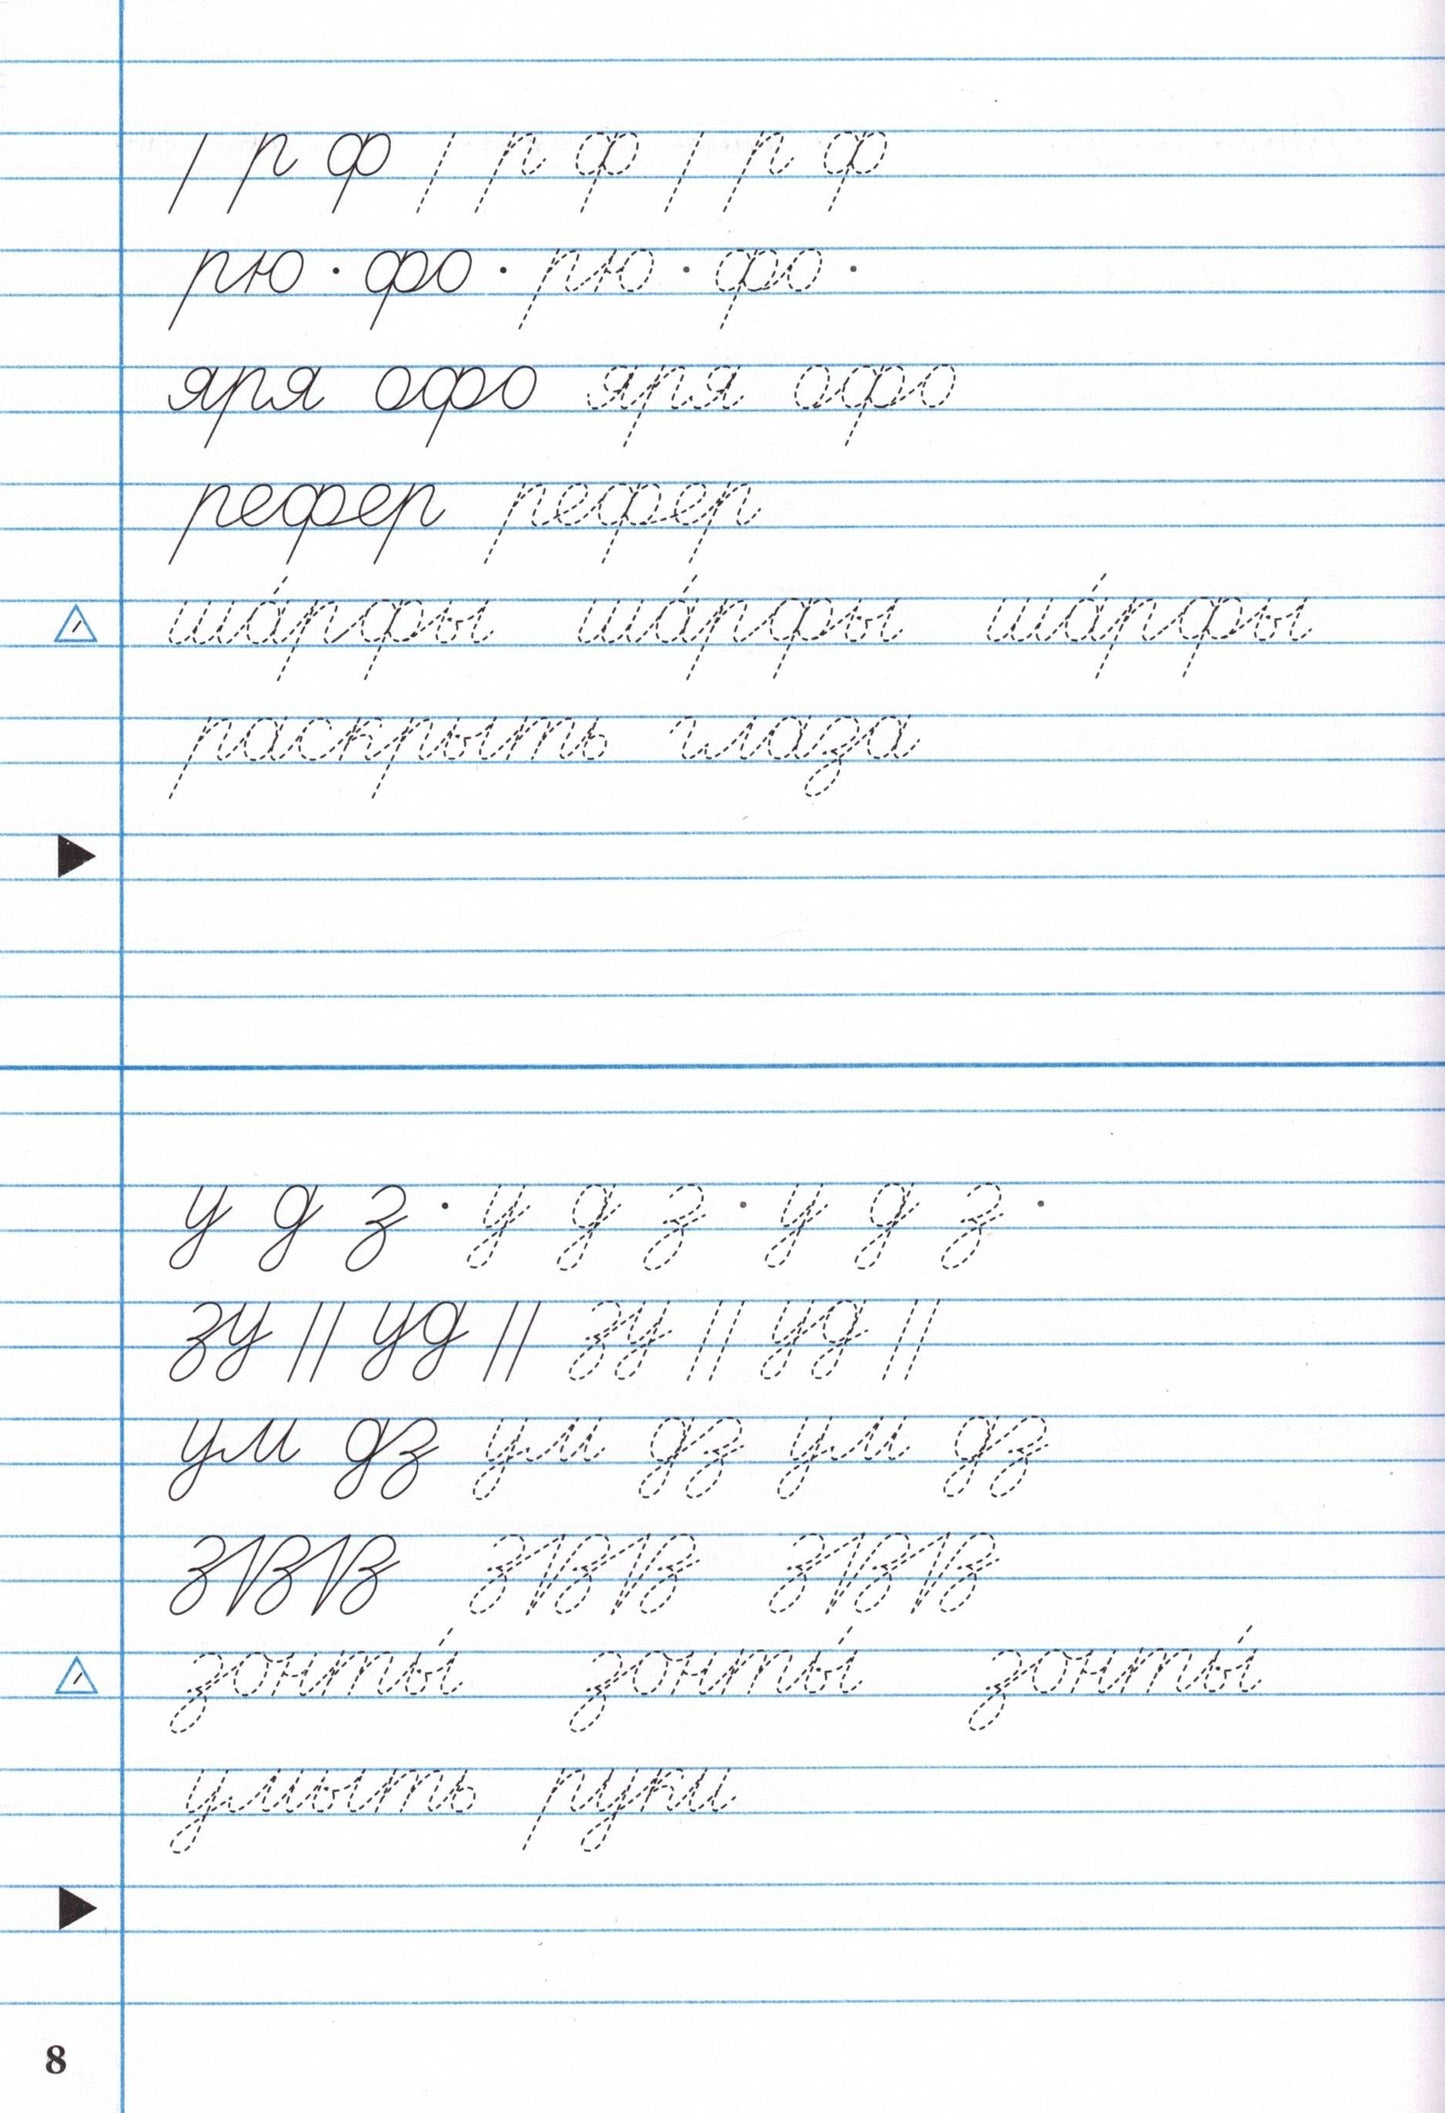 / р ф / р ф / р ф
рю · фо · рю · фо ·
яря офо яря офо
рефер рефер
ша́рфы ша́рфы ша́рфы
раскрыть глаза
у д з · у д з · у д з ·
зу || уд || зу || уд ||
ум дз ум дз ум дз
зонты́ зонты́ зонты́
умыть руки
8